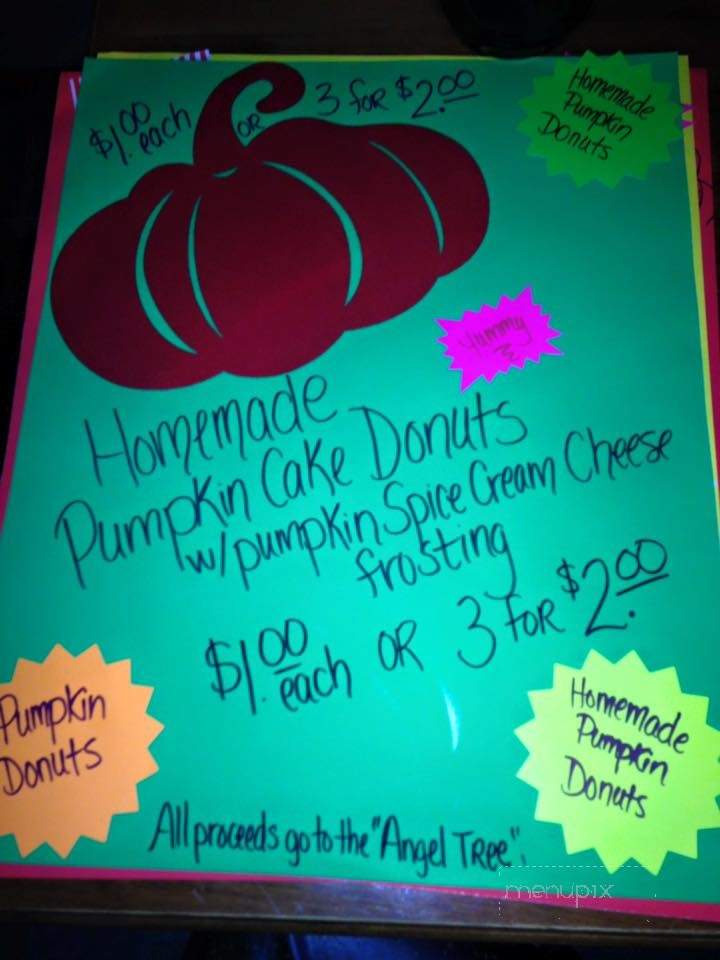 $1.00 each
OR
3 for $2.00
Homemade
Pumpkin
Donuts
Yummy
Homemade
Pumpkin Cake Donuts
w/pumpkin Spice Cream Cheese
frosting
$1.00 each OR 3 FOR $2.00
Pumpkin
Donuts
Homemade
Pumpkin
Donuts
All proceeds go to the "Angel Tree".
menupix